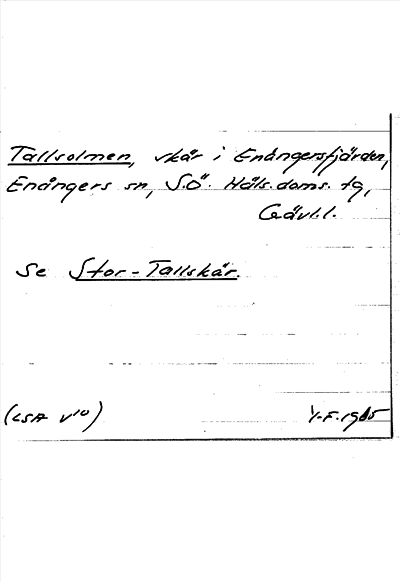 Tallsolmen, skär i Enångersfjärden,
Enångers sn, S.Ö. Häls. doms. tg,
Gävl.l.
Se Stor-Tallskär.
(LSA V10)
Y-F. 1915